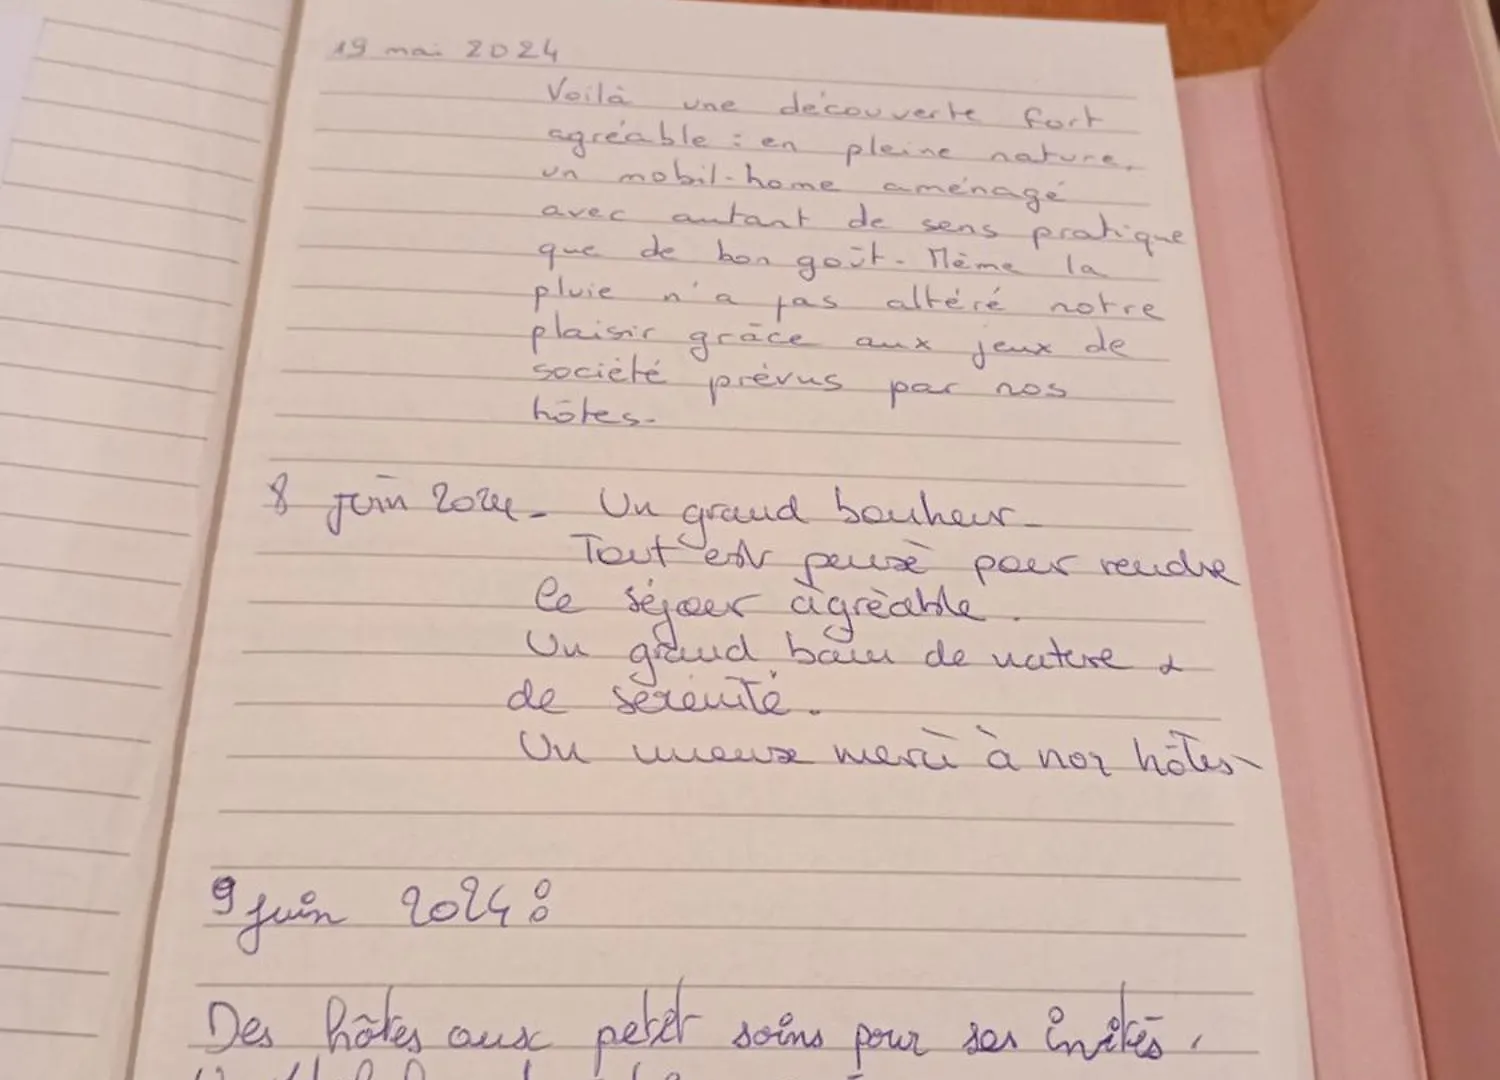 19 mai 2024
Voilà une découverte fort
agréable : en pleine nature,
un mobil-home aménagé
avec autant de sens pratique
que de bon goût. Même la
pluie n'a pas altéré notre
plaisir grâce aux jeux de
société prévus par nos
hôtes.
8 juin 2024 - Un grand bonheur.
Tout est pensé pour rendre
le séjour agréable.
Un grand bain de nature &
de sérénité.
Un merci à nos hôtes
9 juin 2024 :
Des hôtes aux petit soins pour ses invités,